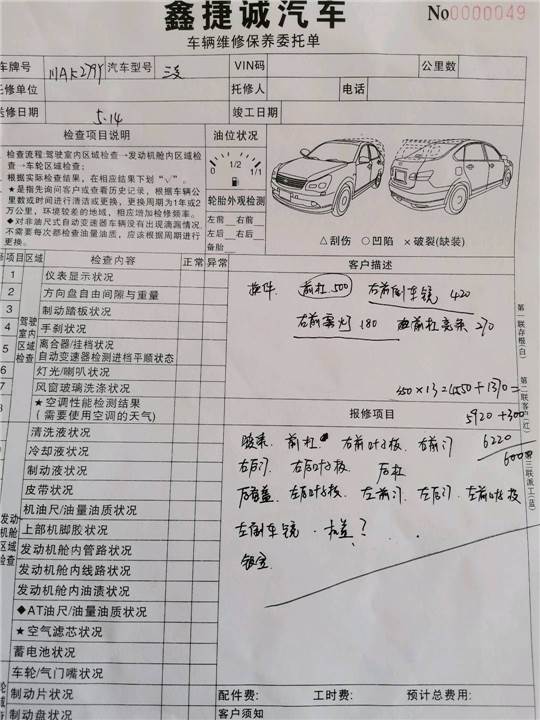 鑫捷诚汽车
No0000049
车辆维修保养委托单
车牌号 川AK279Y 汽车型号 三菱 VIN码 公里数
托修单位 托修人 电话
送修日期 5.14 竣工日期
检查项目说明 油位状况
检查流程:驾驶室内区域检查→发动机舱内区域检
查→车轮区域检查;
根据实际检查结果,在相应结果下划“√”。
★是指先询问客户或查看历史记录,根据车辆公
里数或时间进行清洁或更换,更换周期为1年或2
万公里,环境较差的地域,相应增加检修频率。
◆对非油尺式自动变速器车辆没有出现滴漏情况,
不需要每次都检查油量油质,应该根据周期进行
更换。
0 1/2 1/1
轮胎外观检测
左前 右前
左后 右后
备胎
△刮伤 ○凹陷 ×破裂(缺装)
项目区域 检查内容 正常 异常 客户描述
驾驶室内区域检查
1 仪表显示状况
2 方向盘自由间隙与重量
3 制动踏板状况
4 手刹状况
5 离合器/挂档状况
自动变速器检测进档平顺状态
6 灯光/喇叭状况
7 风窗玻璃洗涤状况
8 ★空调性能检测结果
(需要使用空调的天气)
换件 前杠500 右前倒车镜 420
右前雾灯180 前杠亮条 270
350×13=4550+1370=
5920+300
6220
6000
报修项目
发动机舱区域检查
清洗液状况
冷却液状况
制动液状况
皮带状况
机油尺/油量油质状况
上部机脚胶状况
发动机舱内管路状况
发动机舱内线路状况
发动机舱内油渍状况
◆AT油尺/油量油质状况
★空气滤芯状况
蓄电池状况
车轮/气门嘴状况
制动片状况
制动盘状况
前杠 右前叶子板 右前门
右后门 右后叶子板 后杠
后备盖 左后叶子板 左前门 左后门 左前叶子板
左倒车镜 ?
配件费: 工时费: 预计总费用:
客户须知
第一联存根(白)
第二联客户(红)
第三联派工(蓝)